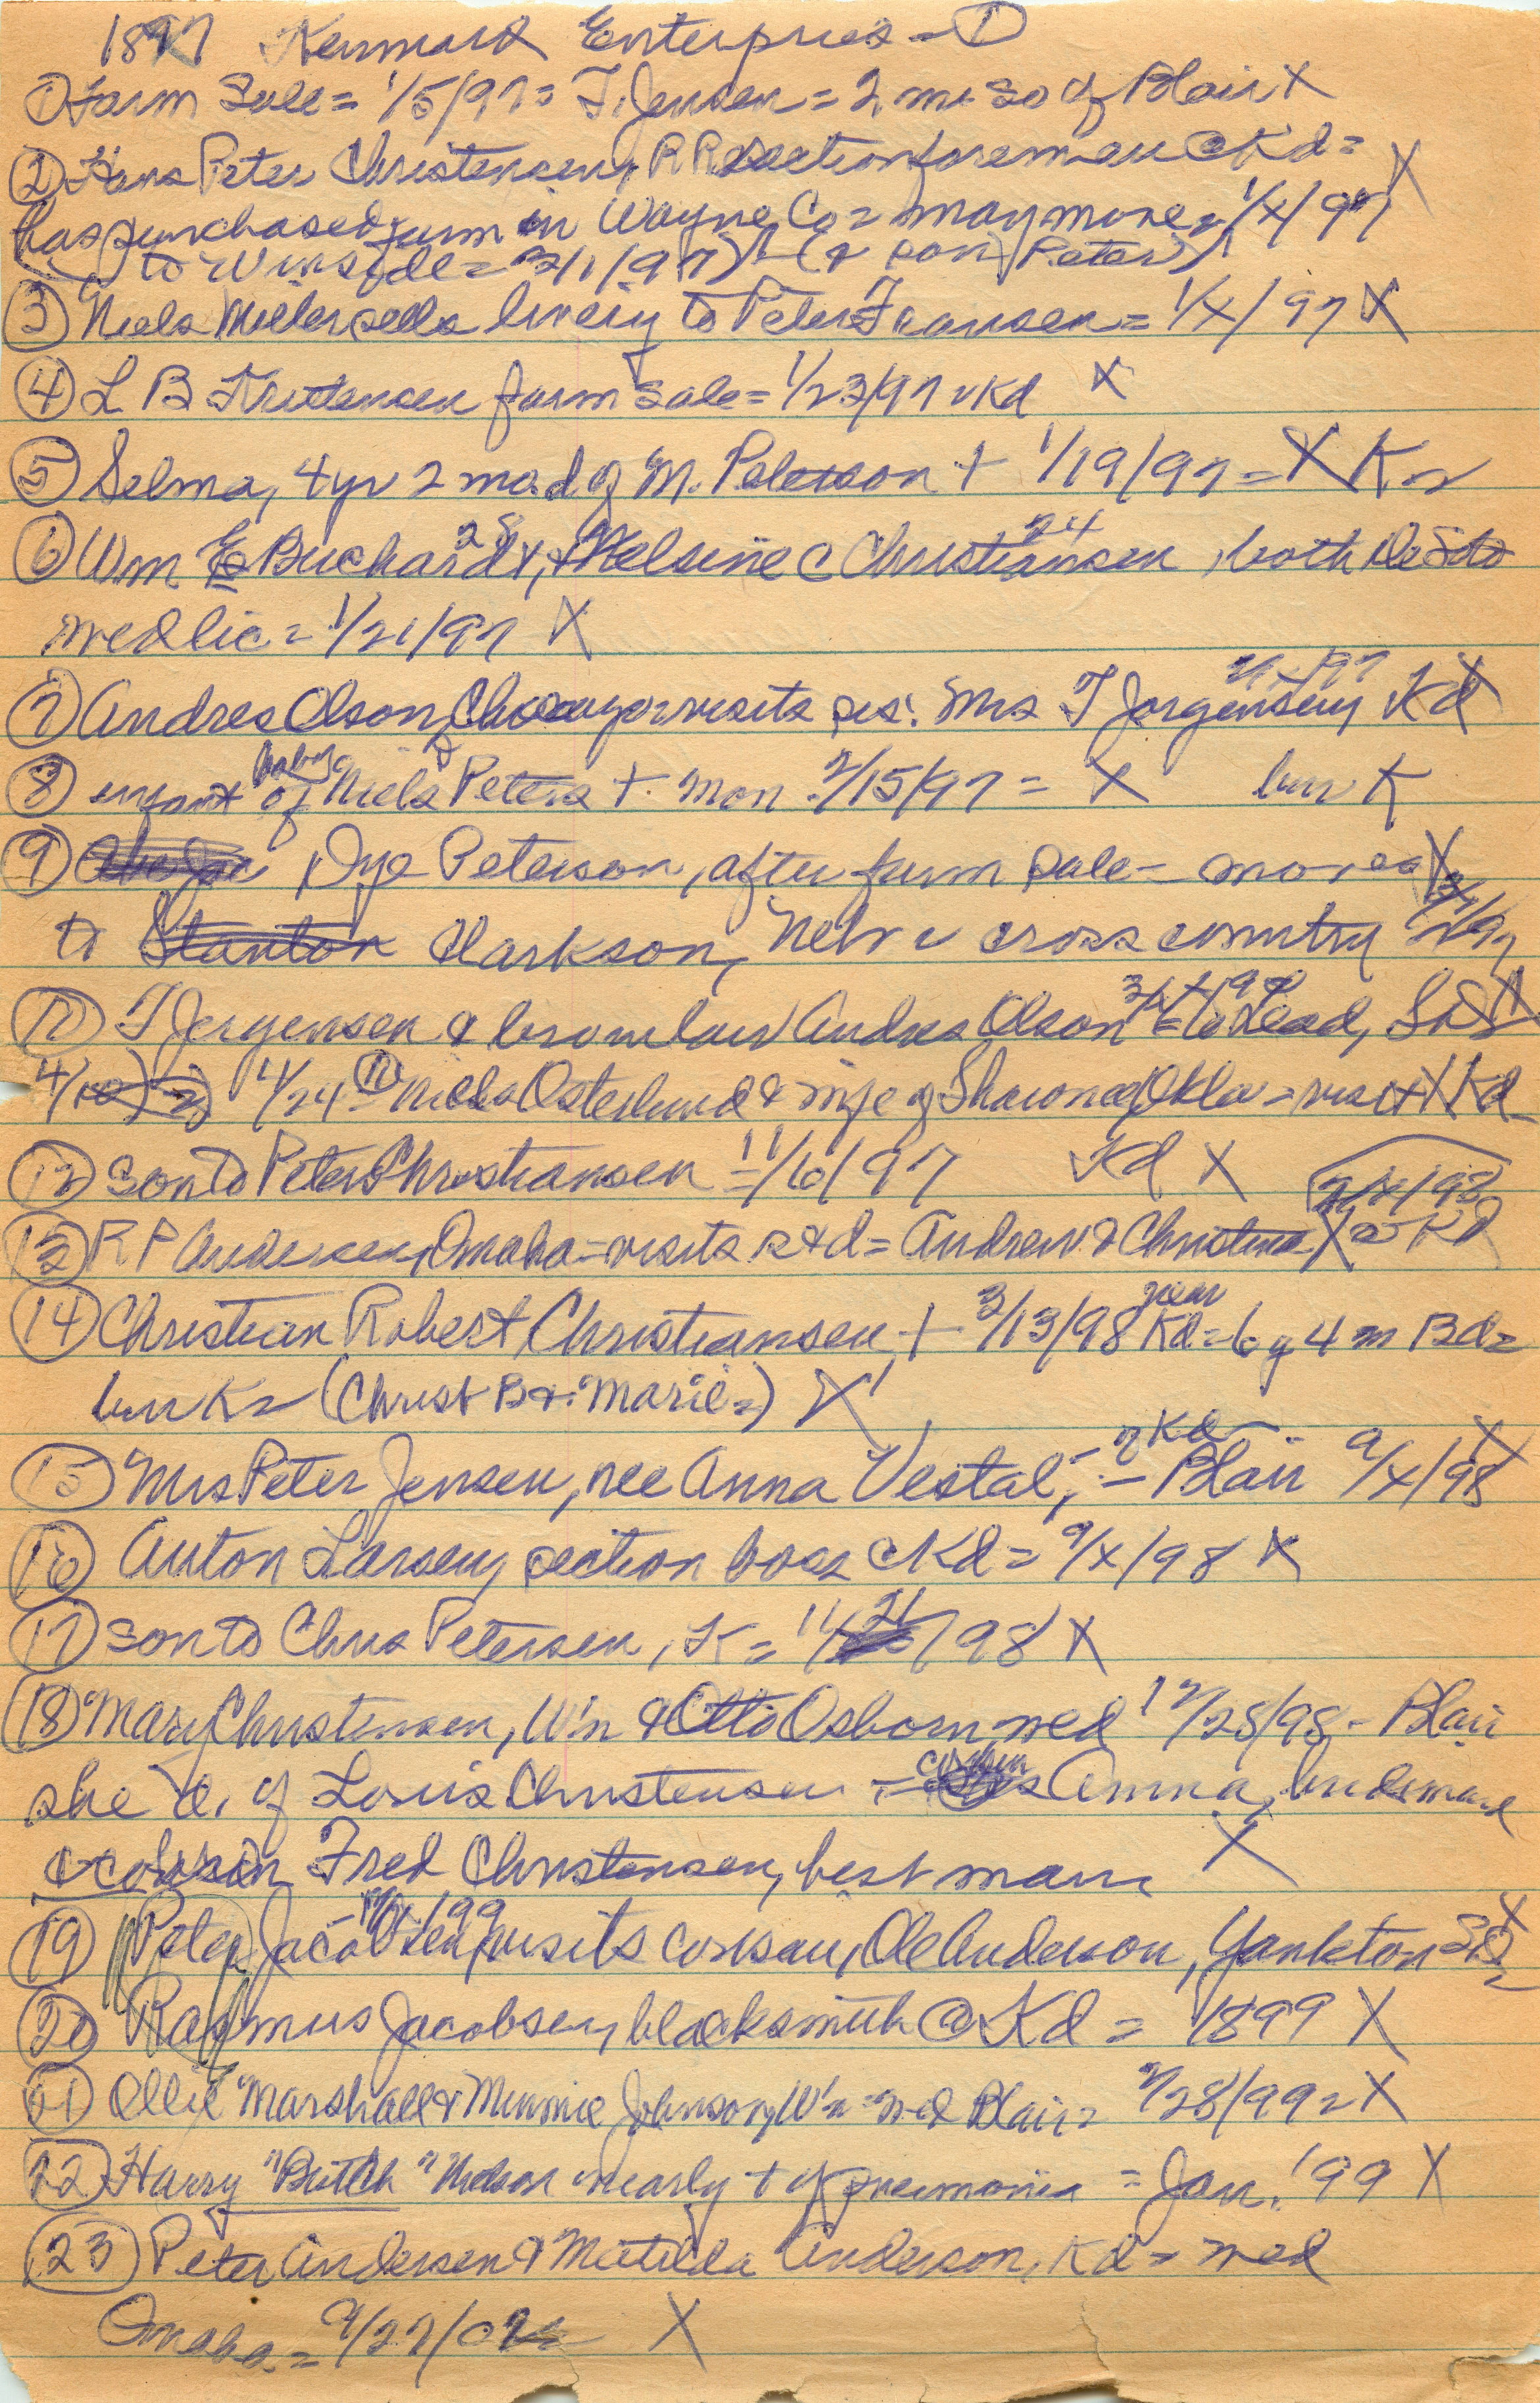 1897 Kenmark Enterprise - ①
① Farm Sale = 1/5/97 = T. Jensen = 2 mi so of Blair X
② Hans Peter Christensen, RR section foreman @ Kd = X
has purchased farm in Wayne Co = may move = 1/x/97
to Winside = 3/1/97) (& son Peter)
③ Niels Miller sells livery to Peter Fransen = 1/x/97 X
④ L B farm sale = 1/23/97 Kd X
⑤ Selma, 4 yr 2 mo. d of M. Peterson + 1/19/97 = X K
⑥ Wm E Buchardt, 28 & Nelsine C Christiansen 24, both De Soto
wed lic = 1/21/97 X
⑦ Andres Olson, Chicago visits sis. Mrs T Jorgensen, Kd X
⑧ infant baby of Niels Peters + Mon 2/15/97 = X bur K
⑨ Peterson, after farm sale - moves X
to Stanton Clarkson, Nebr cross country
⑩ T Jergensen & bro in law Andres Olson = to Lead, SD X
4/24 ⑪ Niels Osterlund & wife of Shawnee, Okla - visit X Kd
⑫ son to Peter Christiansen = 11/6/97 Kd X
⑬ R P Andersen, Omaha - visits s & d = Andrew & Christina X @ Kd
⑭ Christian Robert Christiansen, + 3/13/98 near Kd = 6 y 4 m Bd =
bur K = (Christ B & Marie =) X
⑮ Mrs Peter Jensen, nee Anna Vestal, - of Kd - Blair 9/x/98 X
⑯ Anton Larsen, section boss @ Kd = 9/x/98 X
⑰ son to Chris Petersen, K = 11/21/98 X
⑱ Mary Christensen, W'n & Otto Osborn, wed 12/28/98 - Blair
she d. of Louis Christensen = cousin Anna, bridesmaid
& cousin Fred Christensen, best man X
⑲ Peter Jacobsen, visits cousin, Ole Anderson, Yankton SD X
⑳ Rasmus Jacobsen, blacksmith @ Kd = 1899 X
㉑ Ollie Marshall & Minnie Johnson, W'n wed Blair = 2/28/99 = X
㉒ Harry "Butch" nearly + of pneumonia = Jan. '99 X
㉓ Peter Andersen & Matilda Anderson, Kd = wed
Omaha = X